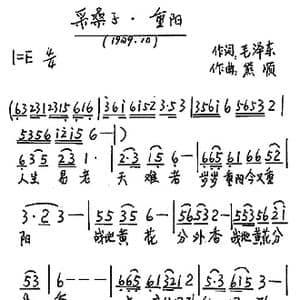 采桑子·重阳
(1929.10)
1=E 4/4
作词:毛泽东
作曲:熊顺
(63231231566 16|3 6 1 6 1 5 2 3·5 3|3 5 6 1 6 5 6 5 3 2|
5 3 5 6 1 2 1 5 6 —|)
6 3 5 2 3 1·|2·3 1 5 6 —|6 6 5 6 1 6 6 5 2|
人生易老 天难老 岁岁重阳今又重
3·2 3 —|5 5 3 5 6 —|5 6 5 3 2 —|5 5 3 5 6 2 1|
阳 战地黄花 分外香 战地黄花分
5 3|6 — — —|6 6 5 6 1 3 2 1 2|5·3 6 1 5 3 —|